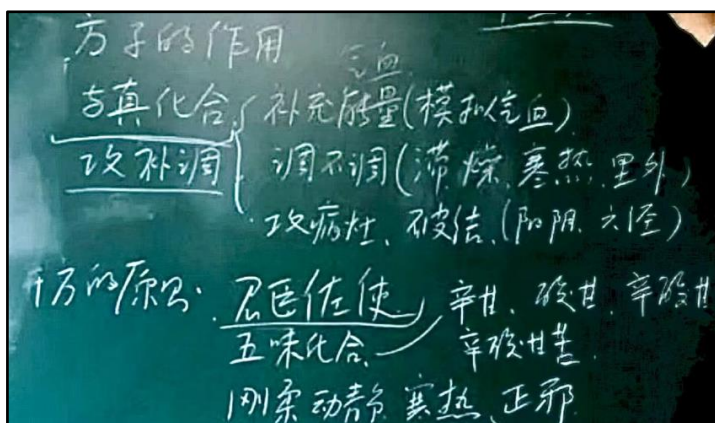 方子的作用
气血
与真化合 补充能量(模拟气血)
攻补调 调不调(滞燥、寒热、里外)
攻病灶、破结、(阴阳、六经)
方的原则、君臣佐使 辛甘、酸甘、辛酸甘
五味化合 辛酸甘苦
刚柔动静 寒热、正邪